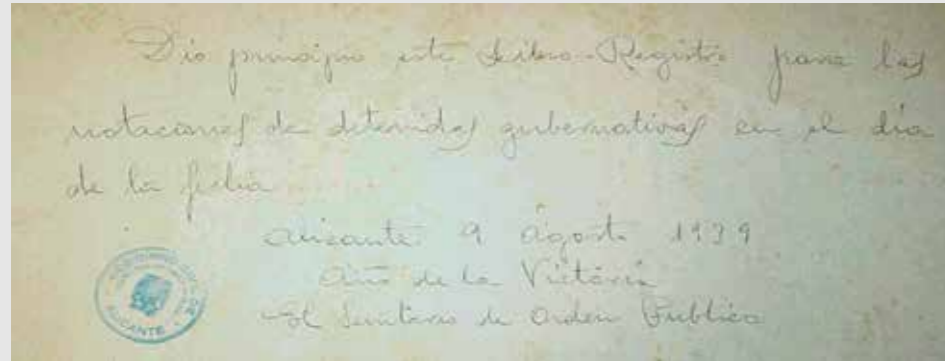 Dio principio este Libro-Registro para las
notaciones de detenidas gubernativas en el día
de la fecha
Alicante 9 Agosto 1939
Año de la Victoria
El Secretario de Orden Público
GOBIERNO CIVIL DE
ALICANTE